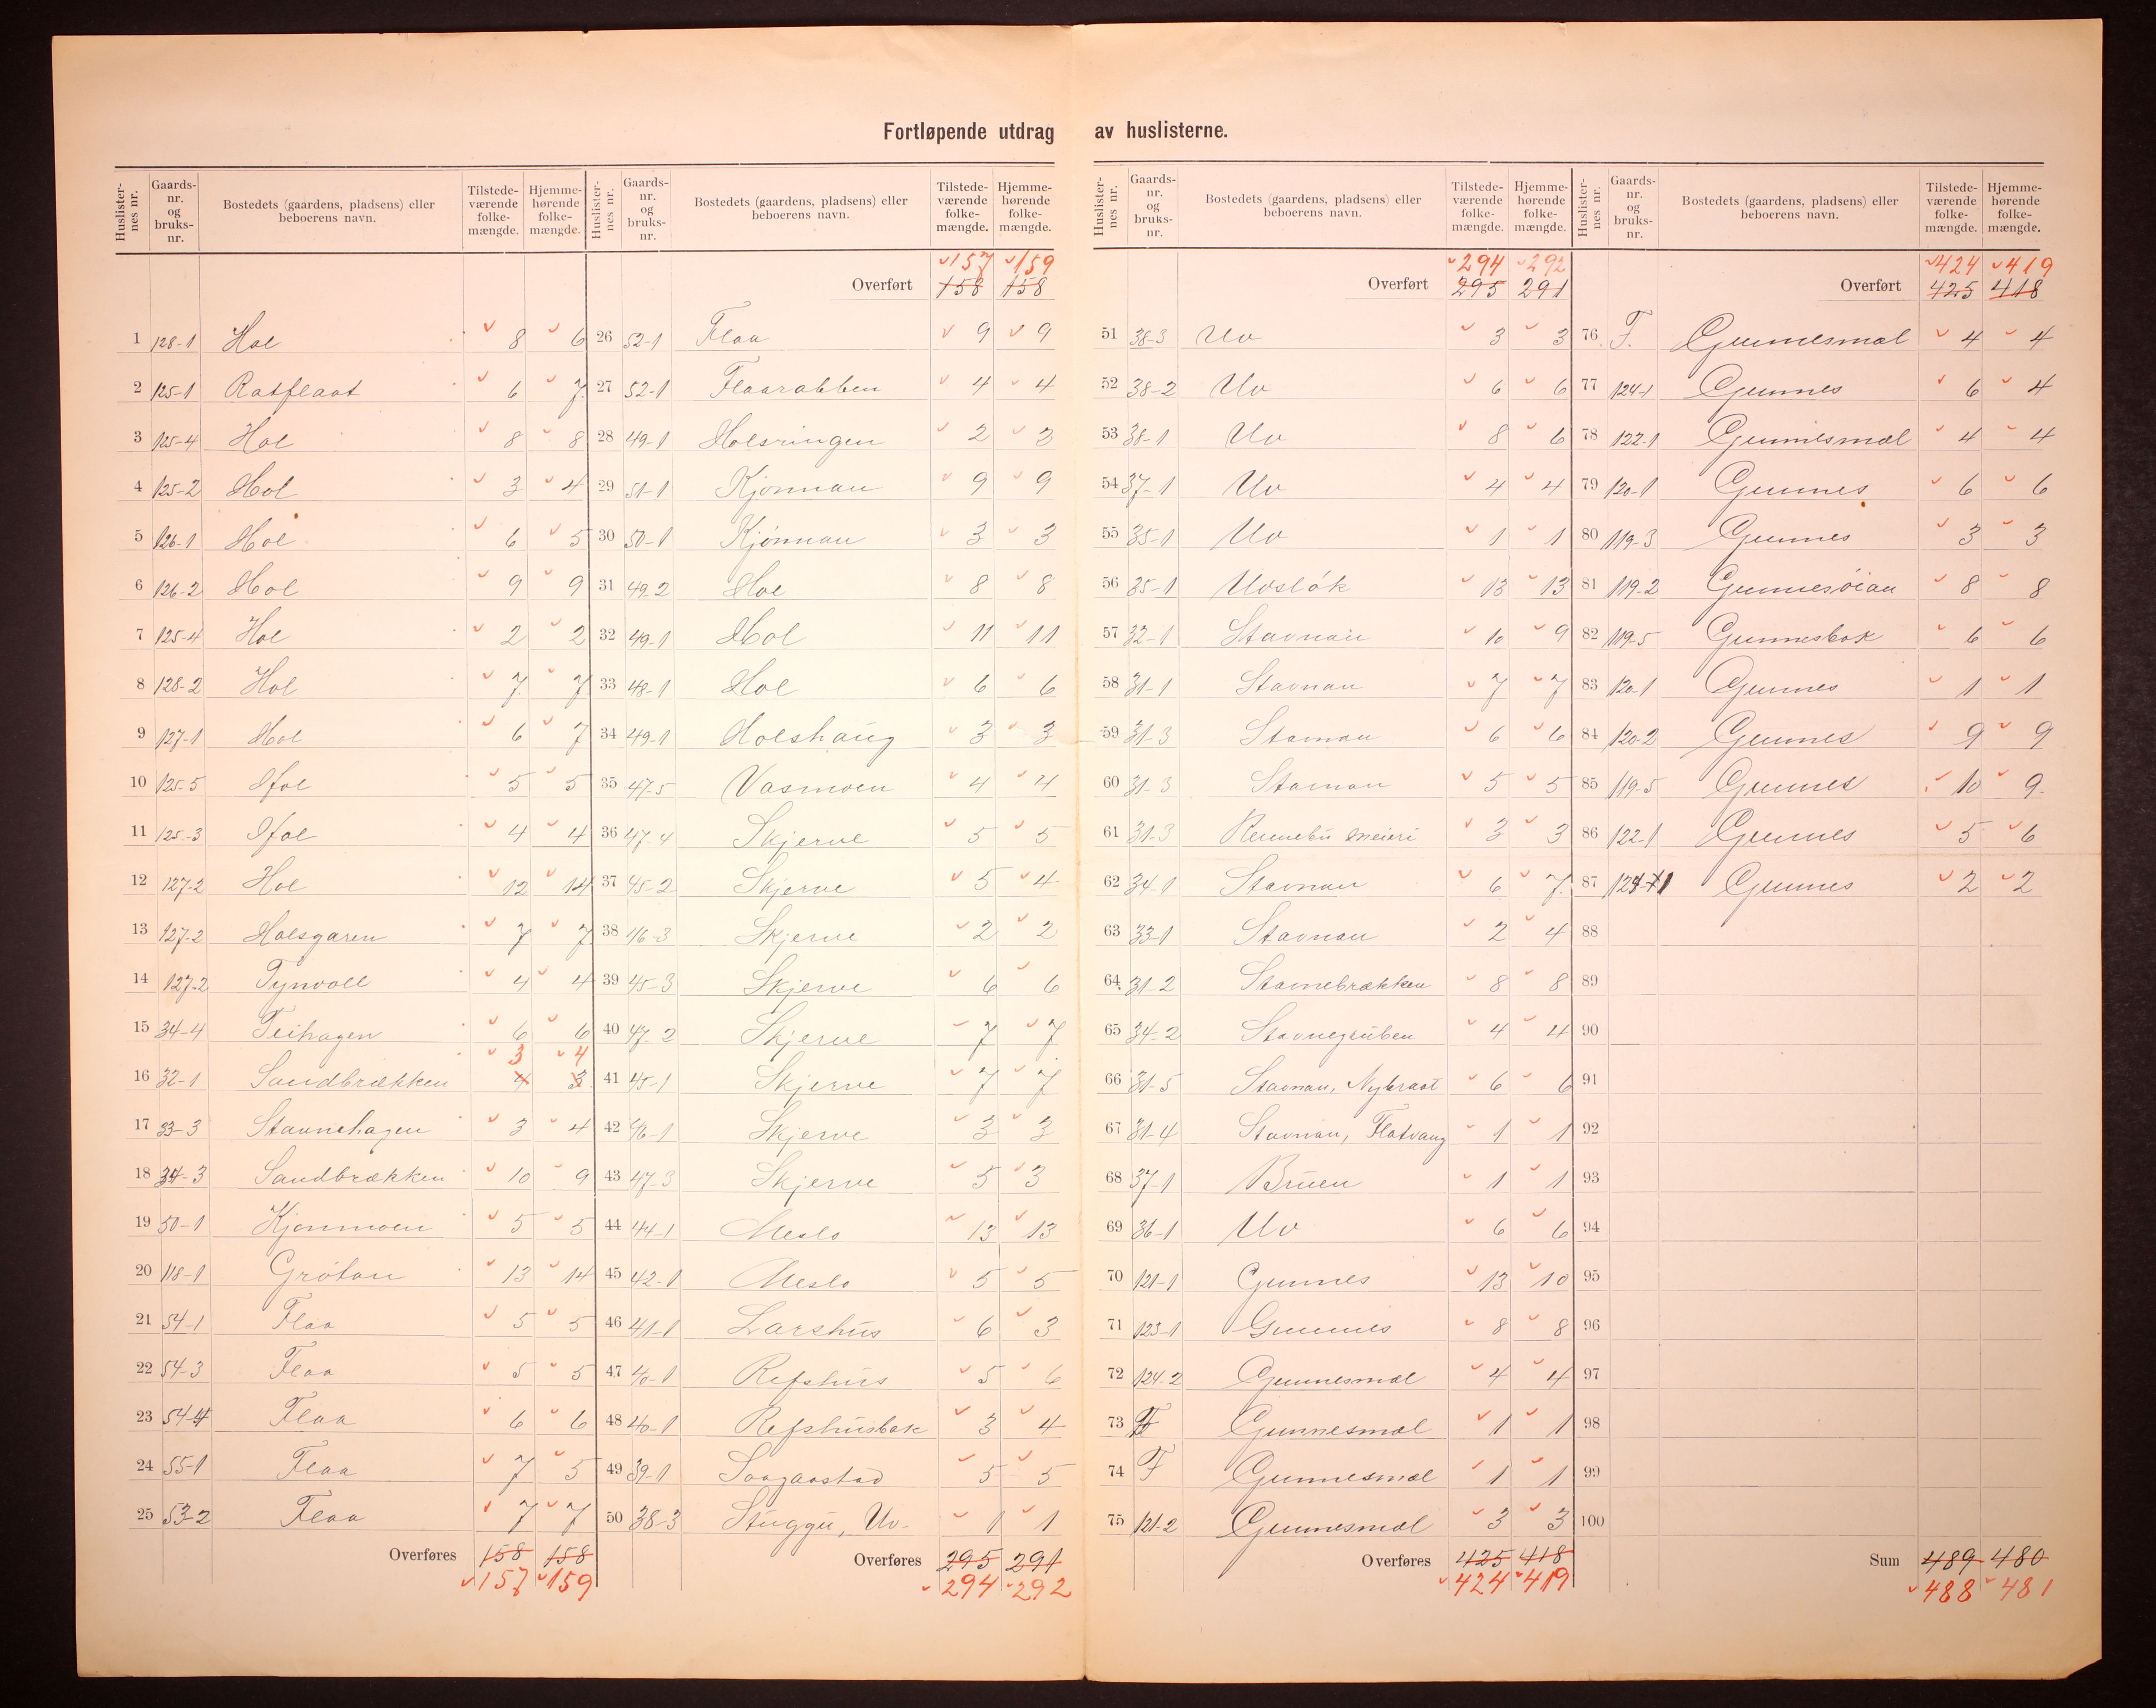 Fortløpende utdrag av huslisterne.
Huslister-nes nr. Gaards-nr. og bruks-nr. Bostedets (gaardens, pladsens) eller beboerens navn. Tilstede-værende folke-mængde. Hjemme-hørende folke-mængde.
1 128-1 Hol 8 6
2 125-1 Ratflaat 6 7
3 125-4 Hol 8 8
4 125-2 Hol 3 4
5 126-1 Hol 6 5
6 126-2 Hol 9 9
7 125-4 Hol 2 2
8 128-2 Hol 7 7
9 127-1 Hol 6 7
10 125-5 Hol 5 5
11 125-3 Hol 4 4
12 127-2 Hol 12 14
13 127-2 Holsgaren 7 7
14 127-2 Tynvoll 4 4
15 34-4 Teihagen 6 6
3 4
16 32-1 Sandbrækken 4 3
17 33-3 Stavnehagen 3 4
18 34-3 Sandbrækken 10 9
19 50-1 Kjønmoen 5 5
20 118-1 Grötan 13 14
21 54-1 Flaa 5 5
22 54-3 Flaa 5 5
23 54-4 Flaa 6 6
24 55-1 Flaa 7 5
25 53-2 Flaa 7 7
Overføres 158 158
157 159
Huslister-nes nr. Gaards-nr. og bruks-nr. Bostedets (gaardens, pladsens) eller beboerens navn. Tilstede-værende folke-mængde. Hjemme-hørende folke-mængde.
157 159
Overført 158 158
26 52-1 Flaa 9 9
27 52-1 Flaarabben 4 4
28 49-1 Holsringen 2 3
29 51-1 Kjønnan 9 9
30 50-1 Kjønnan 3 3
31 49-2 Hol 8 8
32 49-1 Hol 11 11
33 48-1 Hol 6 6
34 49-1 Holshaug 3 3
35 47-5 Vasmoen 4 4
36 47-4 Skjerve 5 5
37 45-2 Skjerve 5 4
38 46-3 Skjerve 2 2
39 45-3 Skjerve 6 6
40 47-2 Skjerve 7 7
41 45-1 Skjerve 7 7
42 46-1 Skjerve 3 3
43 47-3 Skjerve 5 3
44 44-1 Meslo 13 13
45 42-1 Meslo 5 5
46 41-1 Larshus 6 3
47 40-1 Refshus 5 6
48 40-1 Refshusbak 3 4
49 39-1 Saagaastad 5 5
50 38-3 Stuggu, Uv. 1 1
Overføres 295 291
294 292
Huslister-nes nr. Gaards-nr. og bruks-nr. Bostedets (gaardens, pladsens) eller beboerens navn. Tilstede-værende folke-mængde. Hjemme-hørende folke-mængde.
294 292
Overført 295 291
51 38-3 Uv 3 3
52 38-2 Uv 6 6
53 38-1 Uv 8 6
54 37-1 Uv 4 4
55 35-1 Uv 1 1
56 35-1 Uvslök 13 13
57 32-1 Stavnan 10 9
58 31-1 Stavnan 7 7
59 31-3 Stavnan 6 6
60 31-3 Stavnan 5 5
61 31-3 Rennebu meieri 3 3
62 34-1 Stavnan 6 7
63 33-1 Stavnan 2 4
64 31-2 Stavnebrækken 8 8
65 34-2 Stavnegruben 4 4
66 31-5 Stavnan, Nybraat 6 6
67 31-4 Stavnan, Flatvang 1 1
68 37-1 Bruen 1 1
69 36-1 Uv 6 6
70 121-1 Gunnes 13 10
71 123-1 Gunnes 8 8
72 124-2 Gunnesmæl 4 4
73 F Gunnesmæl 1 1
74 F Gunnesmæl 1 1
75 121-2 Gunnesmæl 3 3
Overføres 425 418
424 419
Huslister-nes nr. Gaards-nr. og bruks-nr. Bostedets (gaardens, pladsens) eller beboerens navn. Tilstede-værende folke-mængde. Hjemme-hørende folke-mængde.
424 419
Overført 425 418
76 F. Gunnesmæl 4 4
77 124-1 Gunnes 6 4
78 122-1 Gunnesmæl 4 4
79 120-1 Gunnes 6 6
80 119-3 Gunnes 3 3
81 119-2 Gunnesøian 8 8
82 119-5 Gunnesbak 6 6
83 120-1 Gunnes 1 1
84 120-2 Gunnes 9 9
85 119-5 Gunnes 10 9
86 122-1 Gunnes 5 6
87 Gunnes 2 2
88
89
90
91
92
93
94
95
96
97
98
99
100
Sum 489 480
488 481